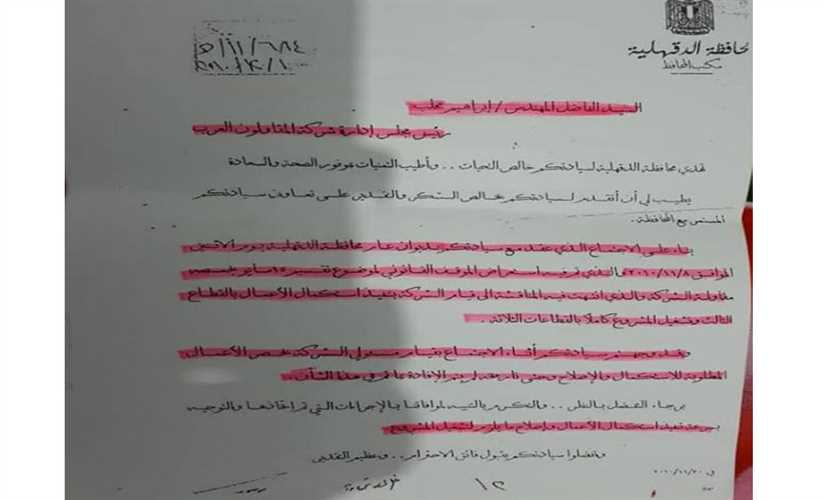 محافظة الدقهلية
مكتب المحافظ
السيد الفاضل المهندس / إبراهيم محلب
رئيس مجلس إدارة شركة المقاولون العرب
تهدي محافظة الدقهلية لسيادتكم خالص التحيات .. وأطيب التمنيات بموفور الصحة والسعادة
يطيب لي أن أتقدم لسيادتكم بخالص الشكر والتقدير على تعاون سيادتكم
المستمر مع المحافظة .
بناء على الاجتماع الذي عقد مع سيادتكم بديوان عام محافظة الدقهلية يوم الاثنين
الموافق ٢٠١٠/١١/٨ والذي تم فيه استعراض الموقف القانوني لموضوع تفسير ١٥ مايو
مقاولة الشركة والذي انتهت فيه المناقشة الى قيام الشركة بتنفيذ استكمال الأعمال بالقطاع
الثالث وتشغيل المشروع كاملا بالقطاعات الثلاثة .
وقد وجهتم سيادتكم أثناء الاجتماع بقيام مسئولي الشركة بحصر الأعمال
المطلوبة للاستكمال والإصلاح وحتى تاريخه لم يتم الإفادة عما تم في هذا الشأن ..
برجاء التفضل بالنظر .. والتكرم بالتنبيه لموافاتنا بالإجراءات التي تم اتخاذها والتوجيه
بسرعة تنفيذ استكمال الأعمال وإصلاح ما يلزم لتشغيل المشروع
وتفضلوا سيادتكم بقبول فائق الاحترام .. وعظيم التقدير